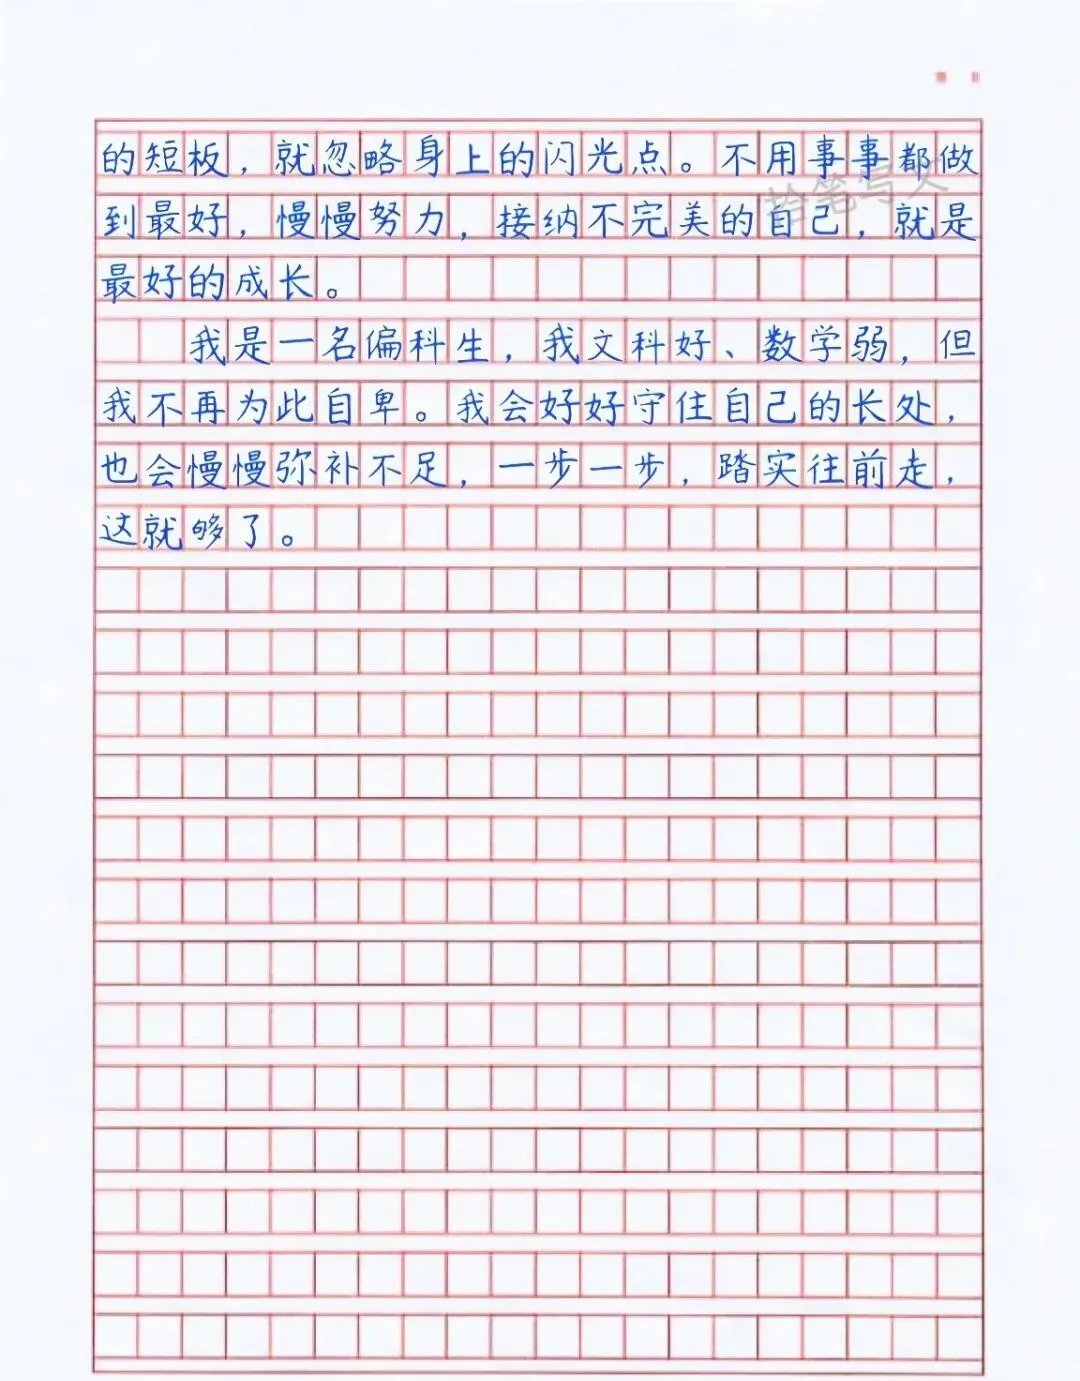 的短板，就忽略身上的闪光点。不用事事都做
到最好，慢慢努力，接纳不完美的自己，就是
最好的成长。
我是一名偏科生，我文科好、数学弱，但
我不再为此自卑。我会好好守住自己的长处，
也会慢慢弥补不足，一步一步，踏实往前走，
这就够了。
拾笔写文